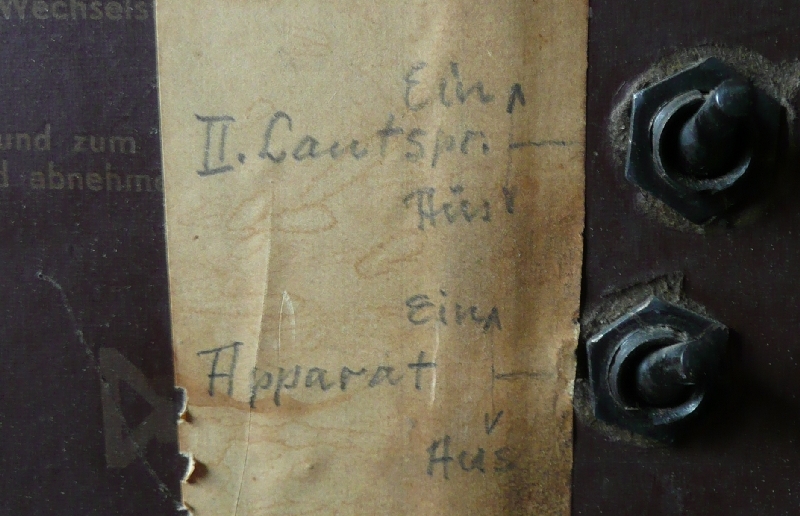 Wechselst
und zum
d abnehme
Ein
II. Lautspr.
Aus
Ein
Apparat
Aus